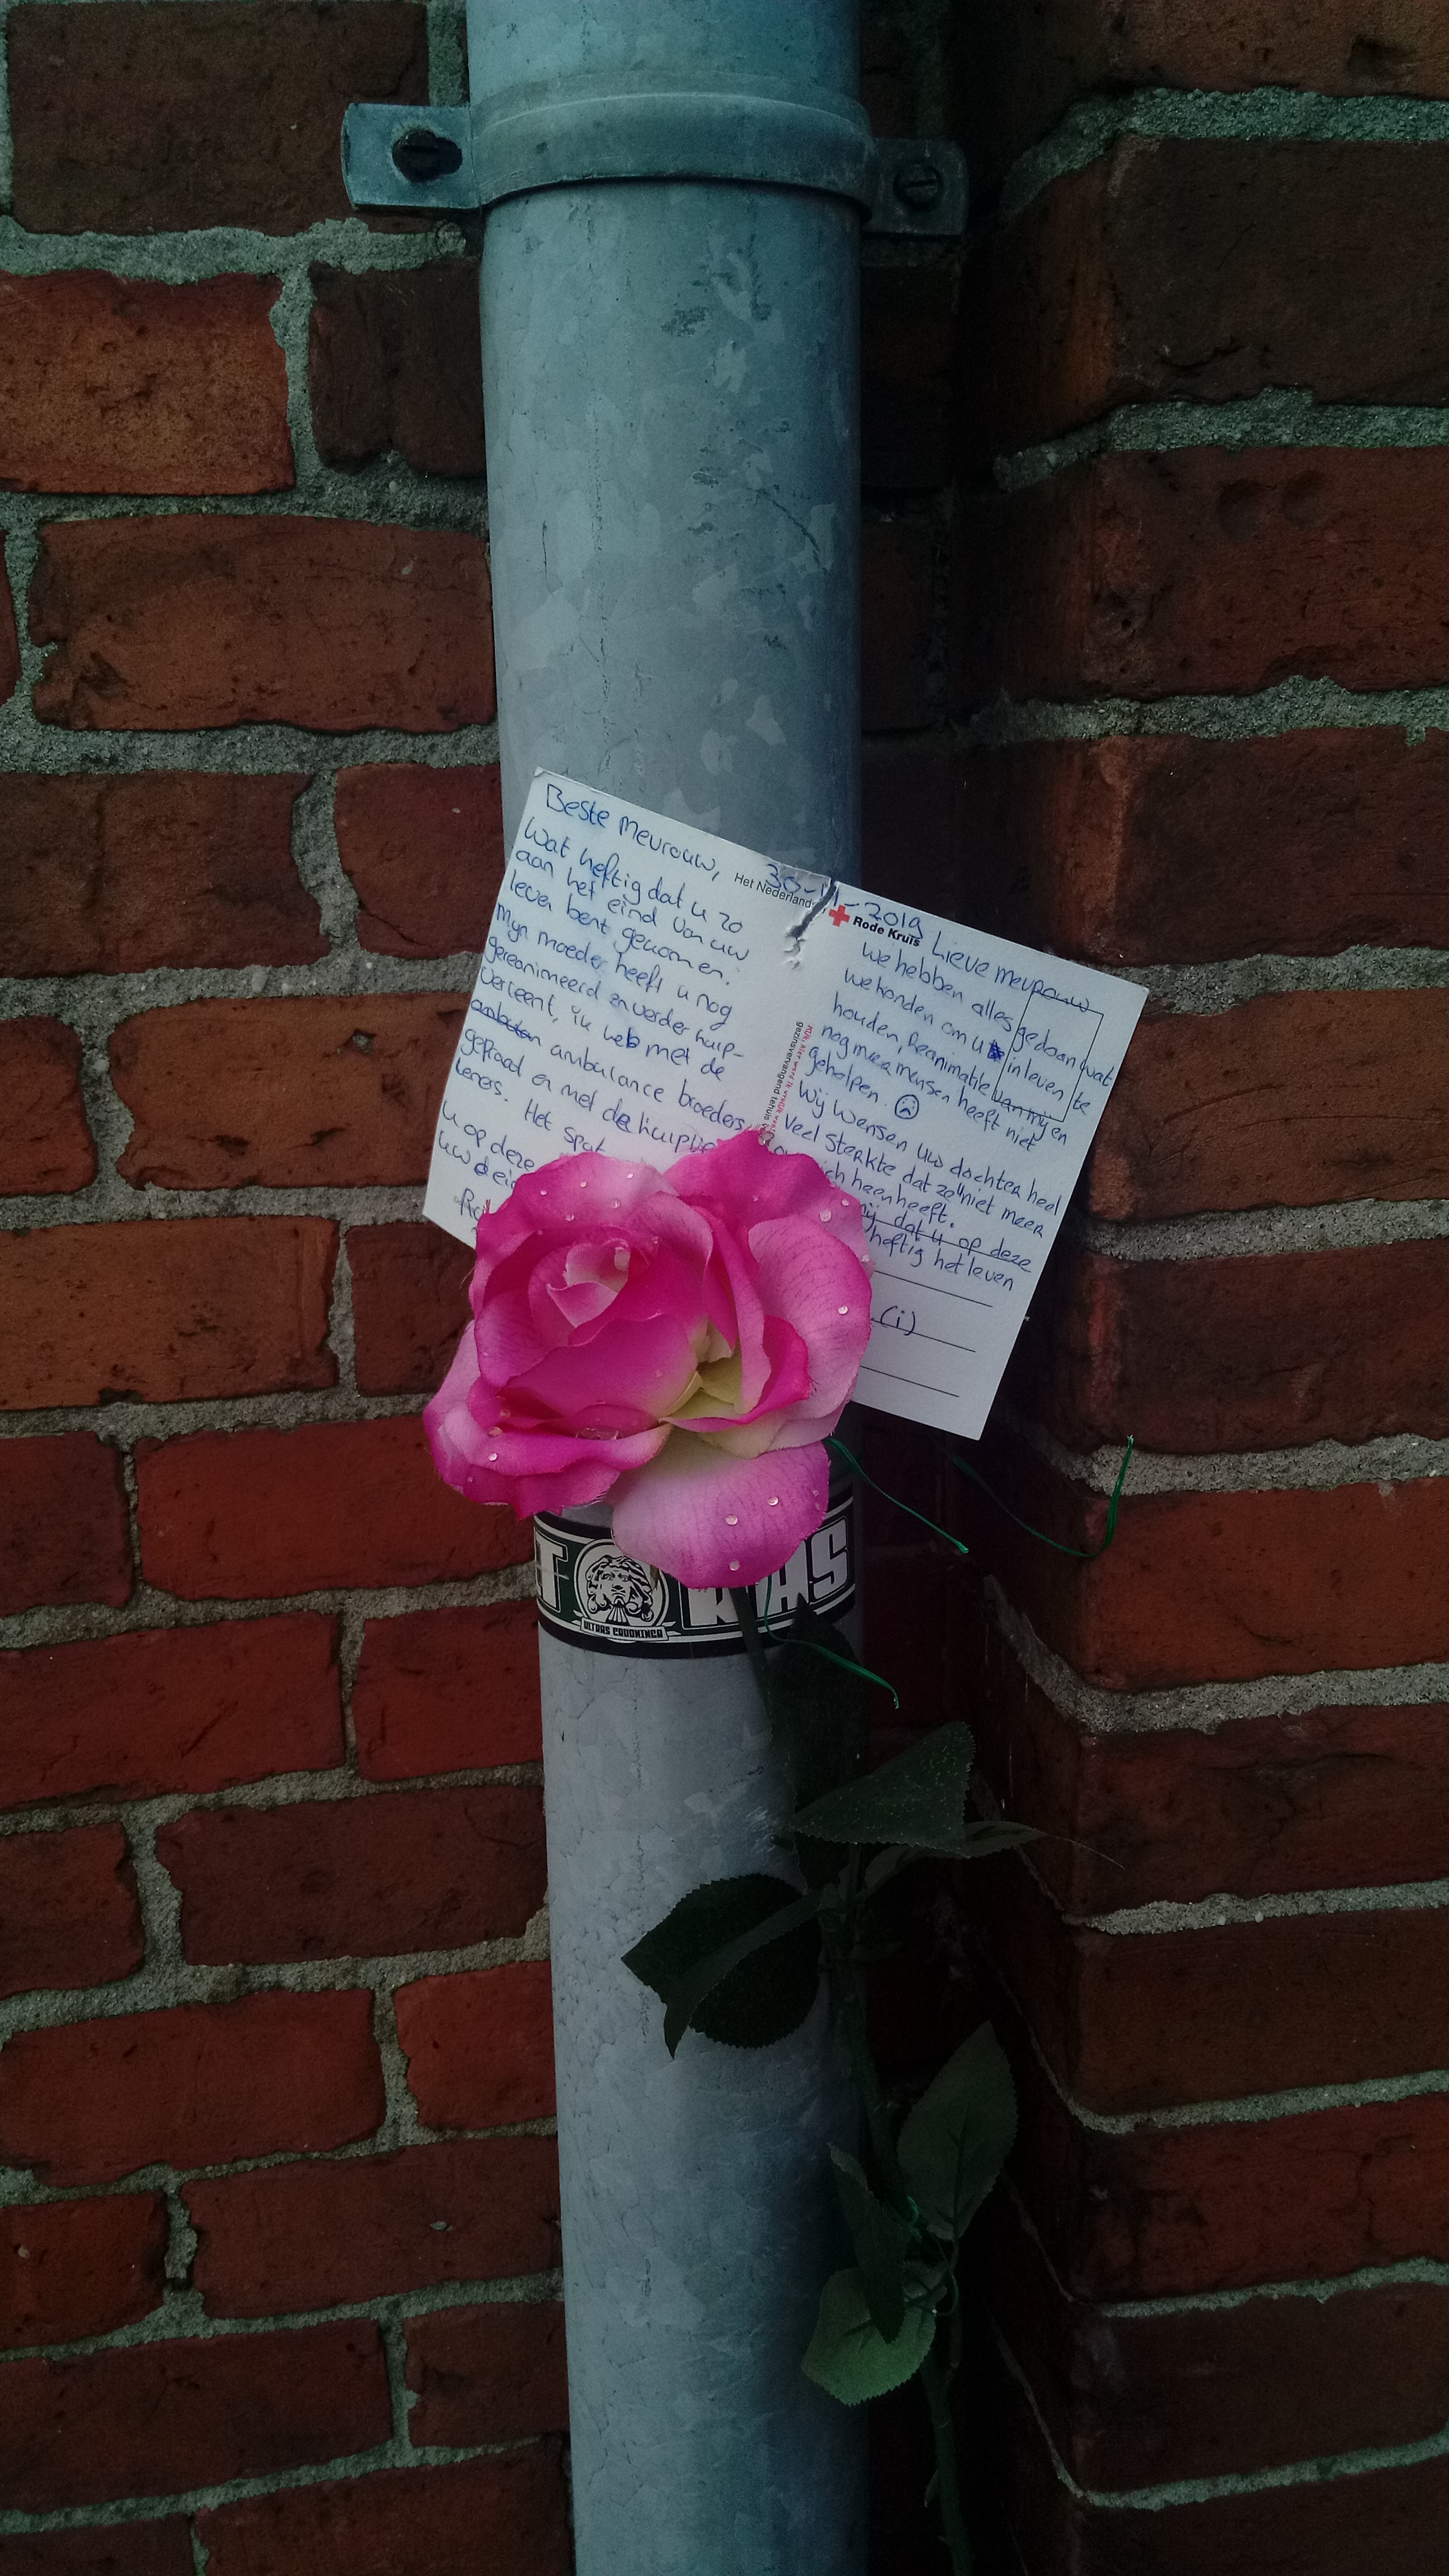 Beste mevrouw,
Wat heftig dat u zo
aan het eind van uw
leven bent gekomen.
Mijn moeder heeft u nog
gereanimeerd en verder hulp-
verleent, ik heb met de
ambulance broeders
gepraat en met de hulpve
leners. Het spo
u op deze
uw
30-11-2019
Het Nederlands
Rode Kruis
Lieve mevrouw
We hebben alles gedaan wat
we konden om u in leven te
houden, Reanimatie van mij en
nog meer mensen heeft niet
geholpen.
Wij wensen uw dochter heel
veel sterkte dat ze u niet meer
ich heen heeft.
mij dat u op deze
heftig het leven
(i)
gezinsvervangend tehuis
ULTRAS GRUONINGA